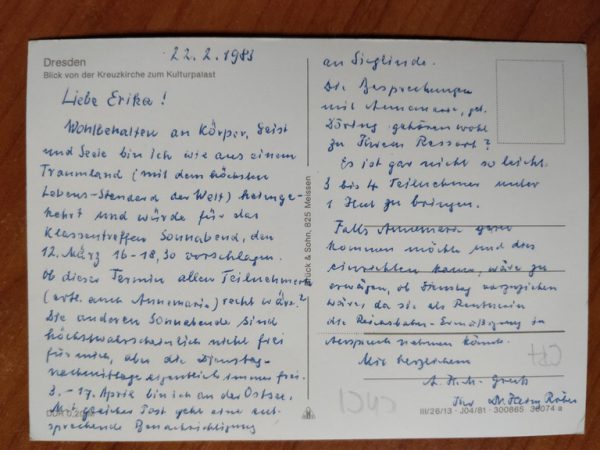 Dresden
Blick von der Kreuzkirche zum Kulturpalast
22.2.1983
Liebe Erika!
Wohlbehalten an Körper, Geist
und Seele bin ich wie aus einem
Traumland (mit dem höchsten
Lebens-Standard der Welt) heimge-
kehrt und würde für das
Klassentreffen Sonnabend, den
12. März 16-18,30 vorschlagen.
Ob dieser Termin allen Teilnehmern
(evtl. auch Annemarie) recht wäre?
Die anderen Sonnabende sind
höchstwahrscheinlich nicht frei
für mich, aber die Dienstag-
nachmittage eigentlich immer frei.
3.-17. April bin ich an der Ostsee.
Mit gleicher Post geht eine ent-
sprechende Benachrichtigung
DDR 0,20 M
Brück & Sohn, 825 Meissen
an Sieglinde.
Die Besprechungen
mit Annemarie, geb.
Döring gehören wohl
zu Ihrem Ressort?
Es ist gar nicht so leicht
3 bis 4 Teilnehmer unter
1 Hut zu bringen.
Falls Annemarie gern
kommen möchte und das
einrichten kann, wäre zu
erwägen, ob Dienstag vorzuziehen
wäre, da sie als Rentnerin
die Reichsbahn-Ermäßigung in
Anspruch nehmen könnte.
Mit herzlichem
Ihr
III/26/13 · J04/81 · 300865 36074 a